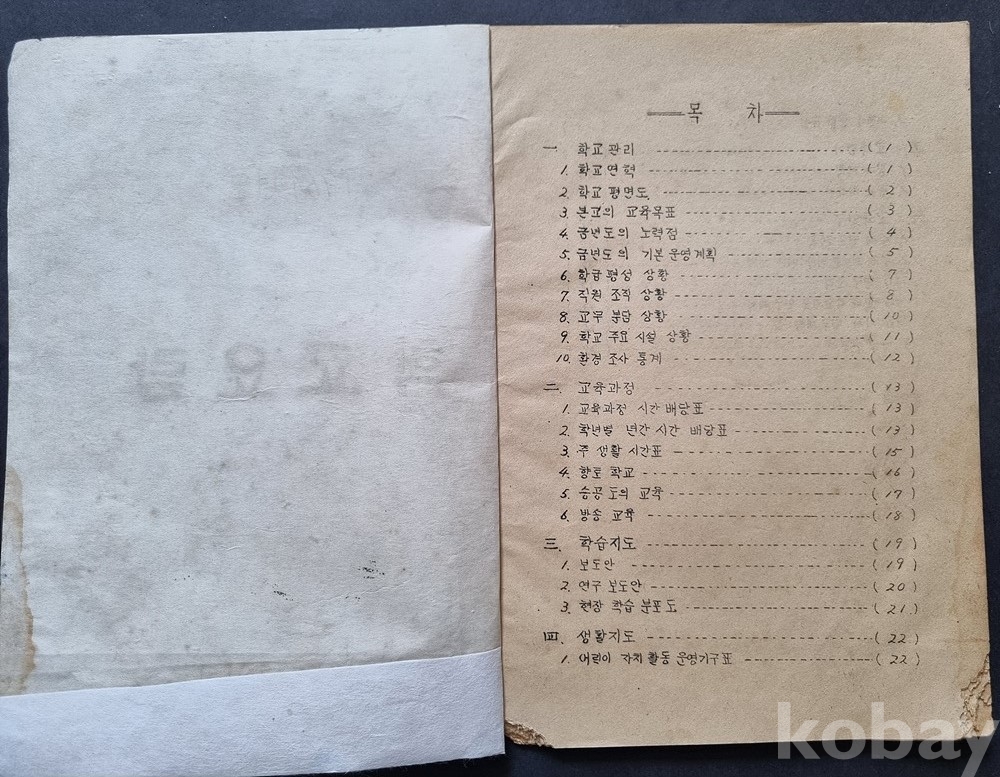 목 차
一 학교관리 ( 1 )
1. 학교연혁 ( 1 )
2. 학교 평면도 ( 2 )
3. 본교의 교육목표 ( 3 )
4. 금년도의 노력점 ( 4 )
5. 금년도의 기본 운영계획 ( 5 )
6. 학급편성 상황 ( 7 )
7. 직원 조직 상황 ( 8 )
8. 교무 분담 상황 ( 10 )
9. 학교 주요 시설 상황 ( 11 )
10. 환경 조사 통계 ( 12 )
二 교육과정 ( 13 )
1. 교육과정 시간 배당표 ( 13 )
2. 학년별 년간 시간 배당표 ( 13 )
3. 주 생활 시간표 ( 15 )
4. 향토 학교 ( 16 )
5. 승공 도의 교육 ( 17 )
6. 방송 교육 ( 18 )
三. 학습지도 ( 19 )
1. 보도안 ( 19 )
2. 연구 보도안 ( 20 )
3. 현장 학습 분포도 ( 21 )
四. 생활지도 ( 22 )
1. 어린이 자치 활동 운영기구표 ( 22 )
kobay